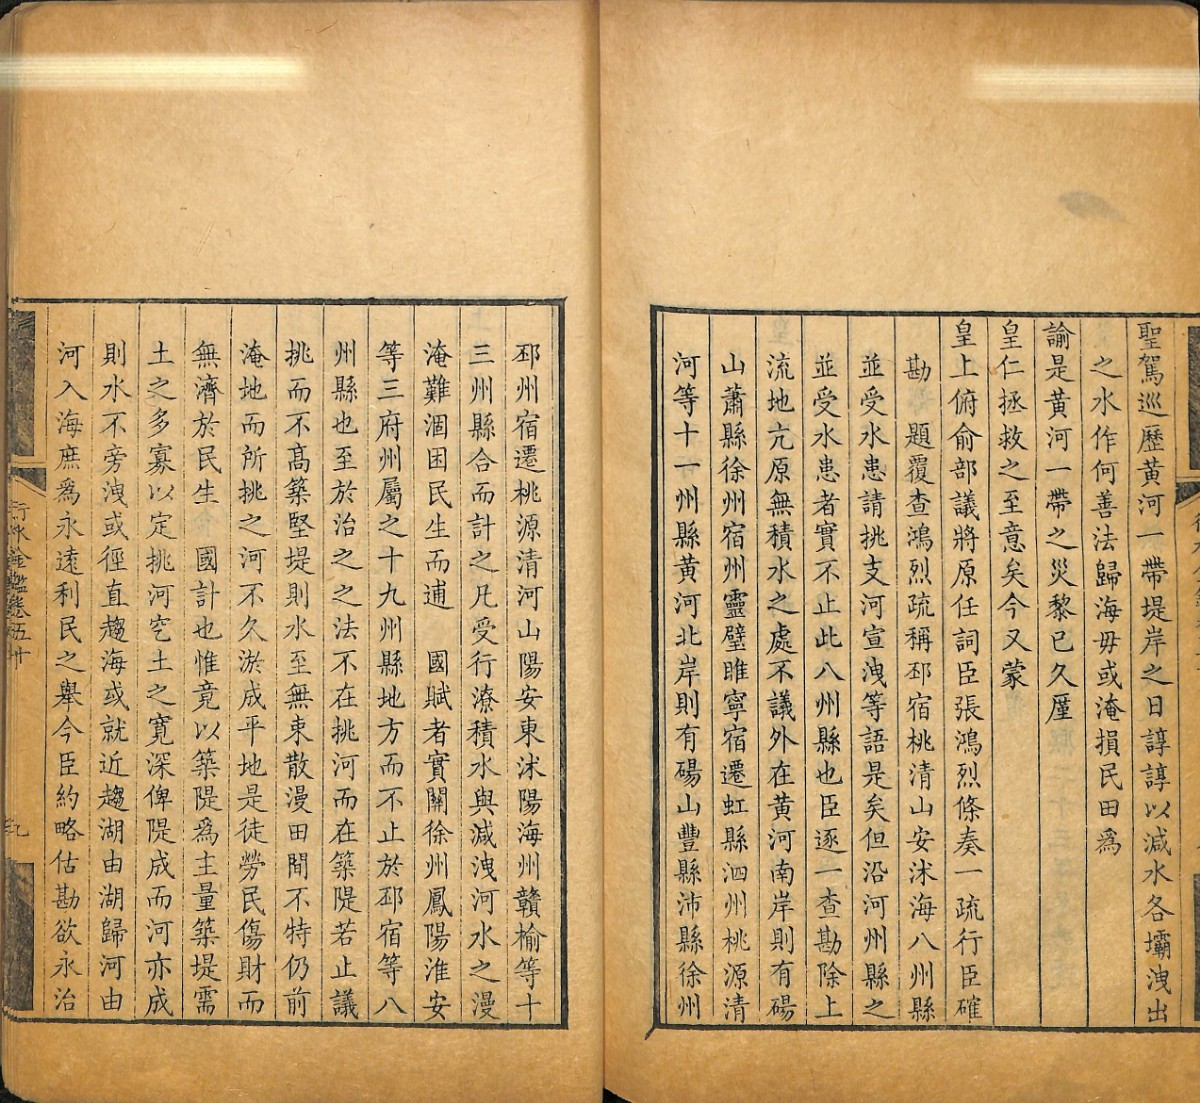 聖駕巡歷黃河一帶堤岸之日諄諄以減水各壩洩出
之水作何善法歸海毋或淹損民田爲
諭是黃河一帶之災黎已久厪
皇仁拯救之至意矣今又蒙
皇上俯俞部議將原任詞臣張鴻烈條奏一疏行臣確
勘　題覆查鴻烈疏稱邳宿桃清山安沭海八州縣
並受水患請挑支河宣洩等語是矣但沿河州縣之
並受水患者實不止此八州縣也臣逐一查勘除上
流地亢原無積水之處不議外在黃河南岸則有碭
山蕭縣徐州宿州靈璧睢寧宿遷虹縣泗州桃源清
河等十一州縣黃河北岸則有碭山豐縣沛縣徐州
邳州宿遷桃源清河山陽安東沭陽海州贛榆等十
三州縣合而計之凡受行潦積水與減洩河水之漫
淹難涸困民生而逋　國賦者實關徐州鳳陽淮安
等三府州屬之十九州縣地方而不止於邳宿等八
州縣也至於治之之法不在挑河而在築隄若止議
挑而不高築堅堤則水至無束散漫田間不特仍前
淹地而所挑之河不久淤成平地是徒勞民傷財而
無濟於民生　國計也惟竟以築隄爲主量築堤需
土之多寡以定挑河空土之寬深俾隄成而河亦成
則水不旁洩或徑直趨海或就近趨湖由湖歸河由
河入海庶爲永遠利民之舉今臣約略估勘欲永治
行水金鑑卷五十
九